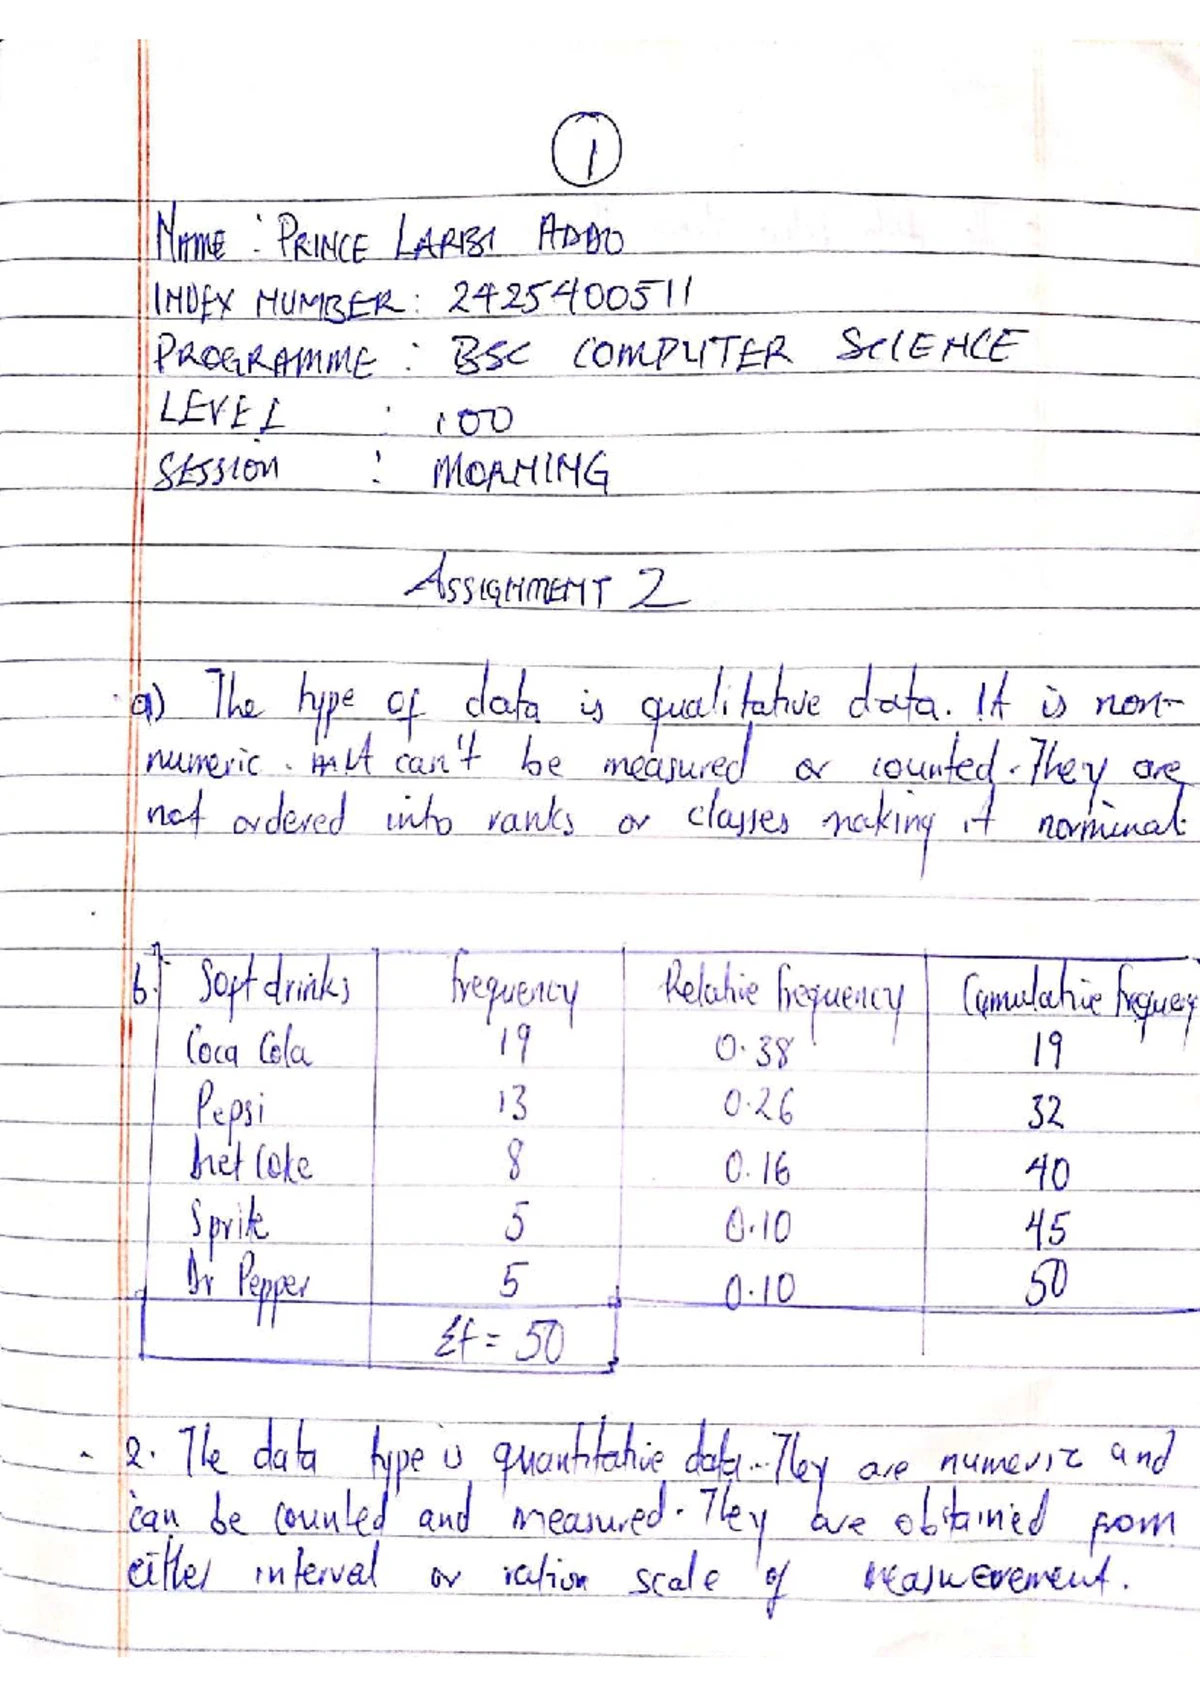 1
NAME : PRINCE LARBI ADDO
INDEX NUMBER : 2425400511
PROGRAMME : BSC COMPUTER SCIENCE
LEVEL : 100
SESSION : MORNING
ASSIGNMENT 2
a) The type of data is qualitative data. It is non-
numeric. It can't be measured or counted. They are
not ordered into ranks or classes making it norminal.
b. Soft drinks frequency Relative frequency Cumulative frequency
Coca Cola 19 0.38 19
Pepsi 13 0.26 32
Diet Coke 8 0.16 40
Sprite 5 0.10 45
Dr Pepper 5 0.10 50
Σf = 50
2. The data type is quantitative data. They are numeric and
can be counted and measured. They are obtained from
either interval or ration scale of measurement.